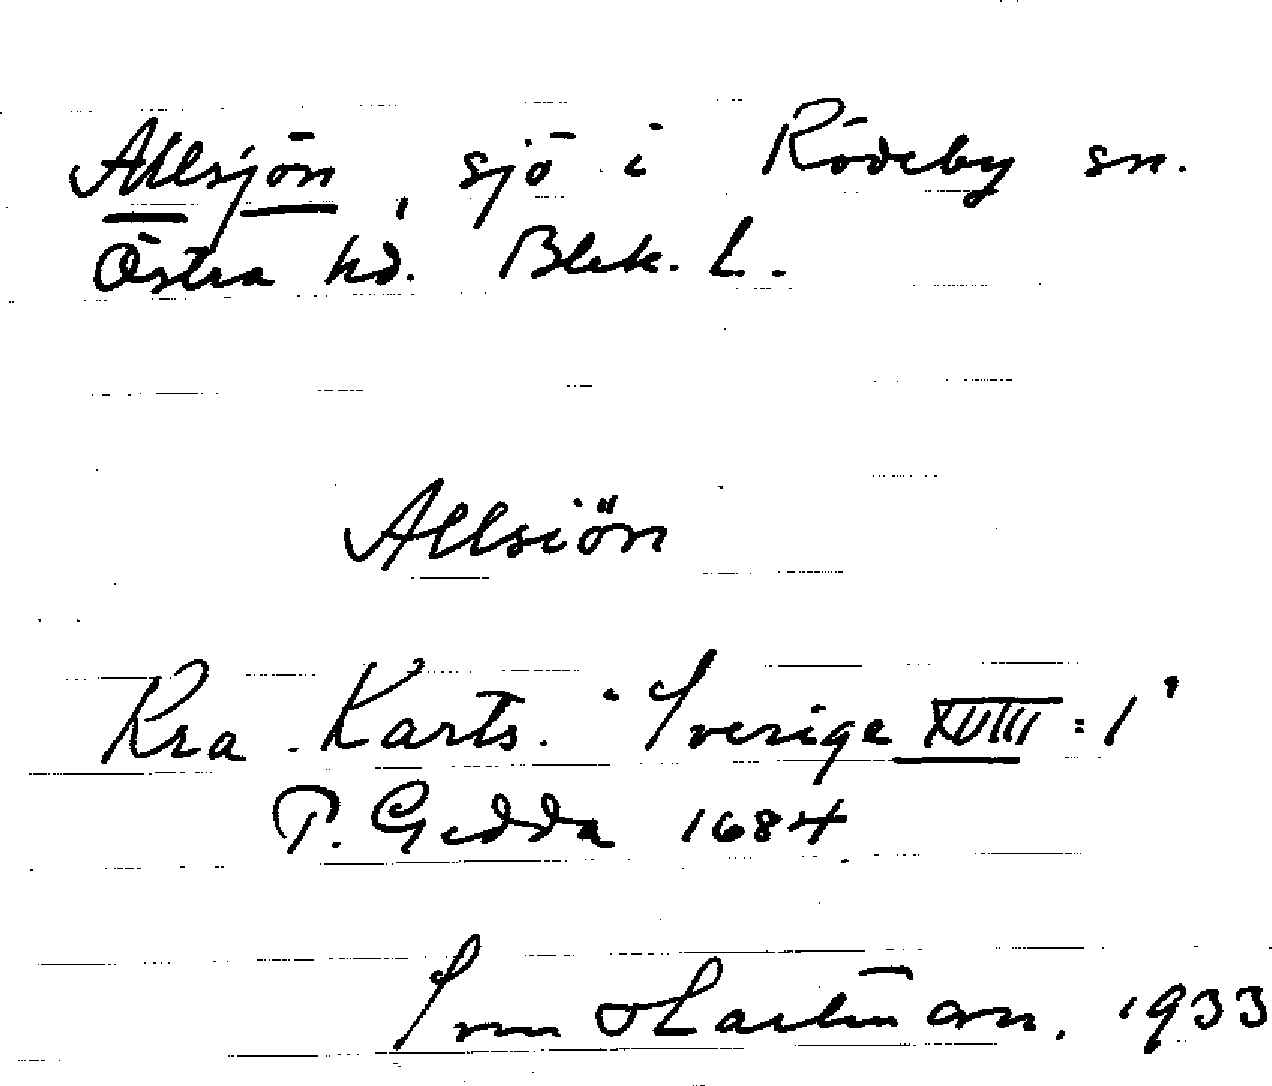 Allsjön, sjö i Rödeby sn.
Östra hd. Blek. L.
Allsiön
Kra. Karts. "Sverige XVIII:1"
P. Gedda 1684
Sven Hartman. 1933